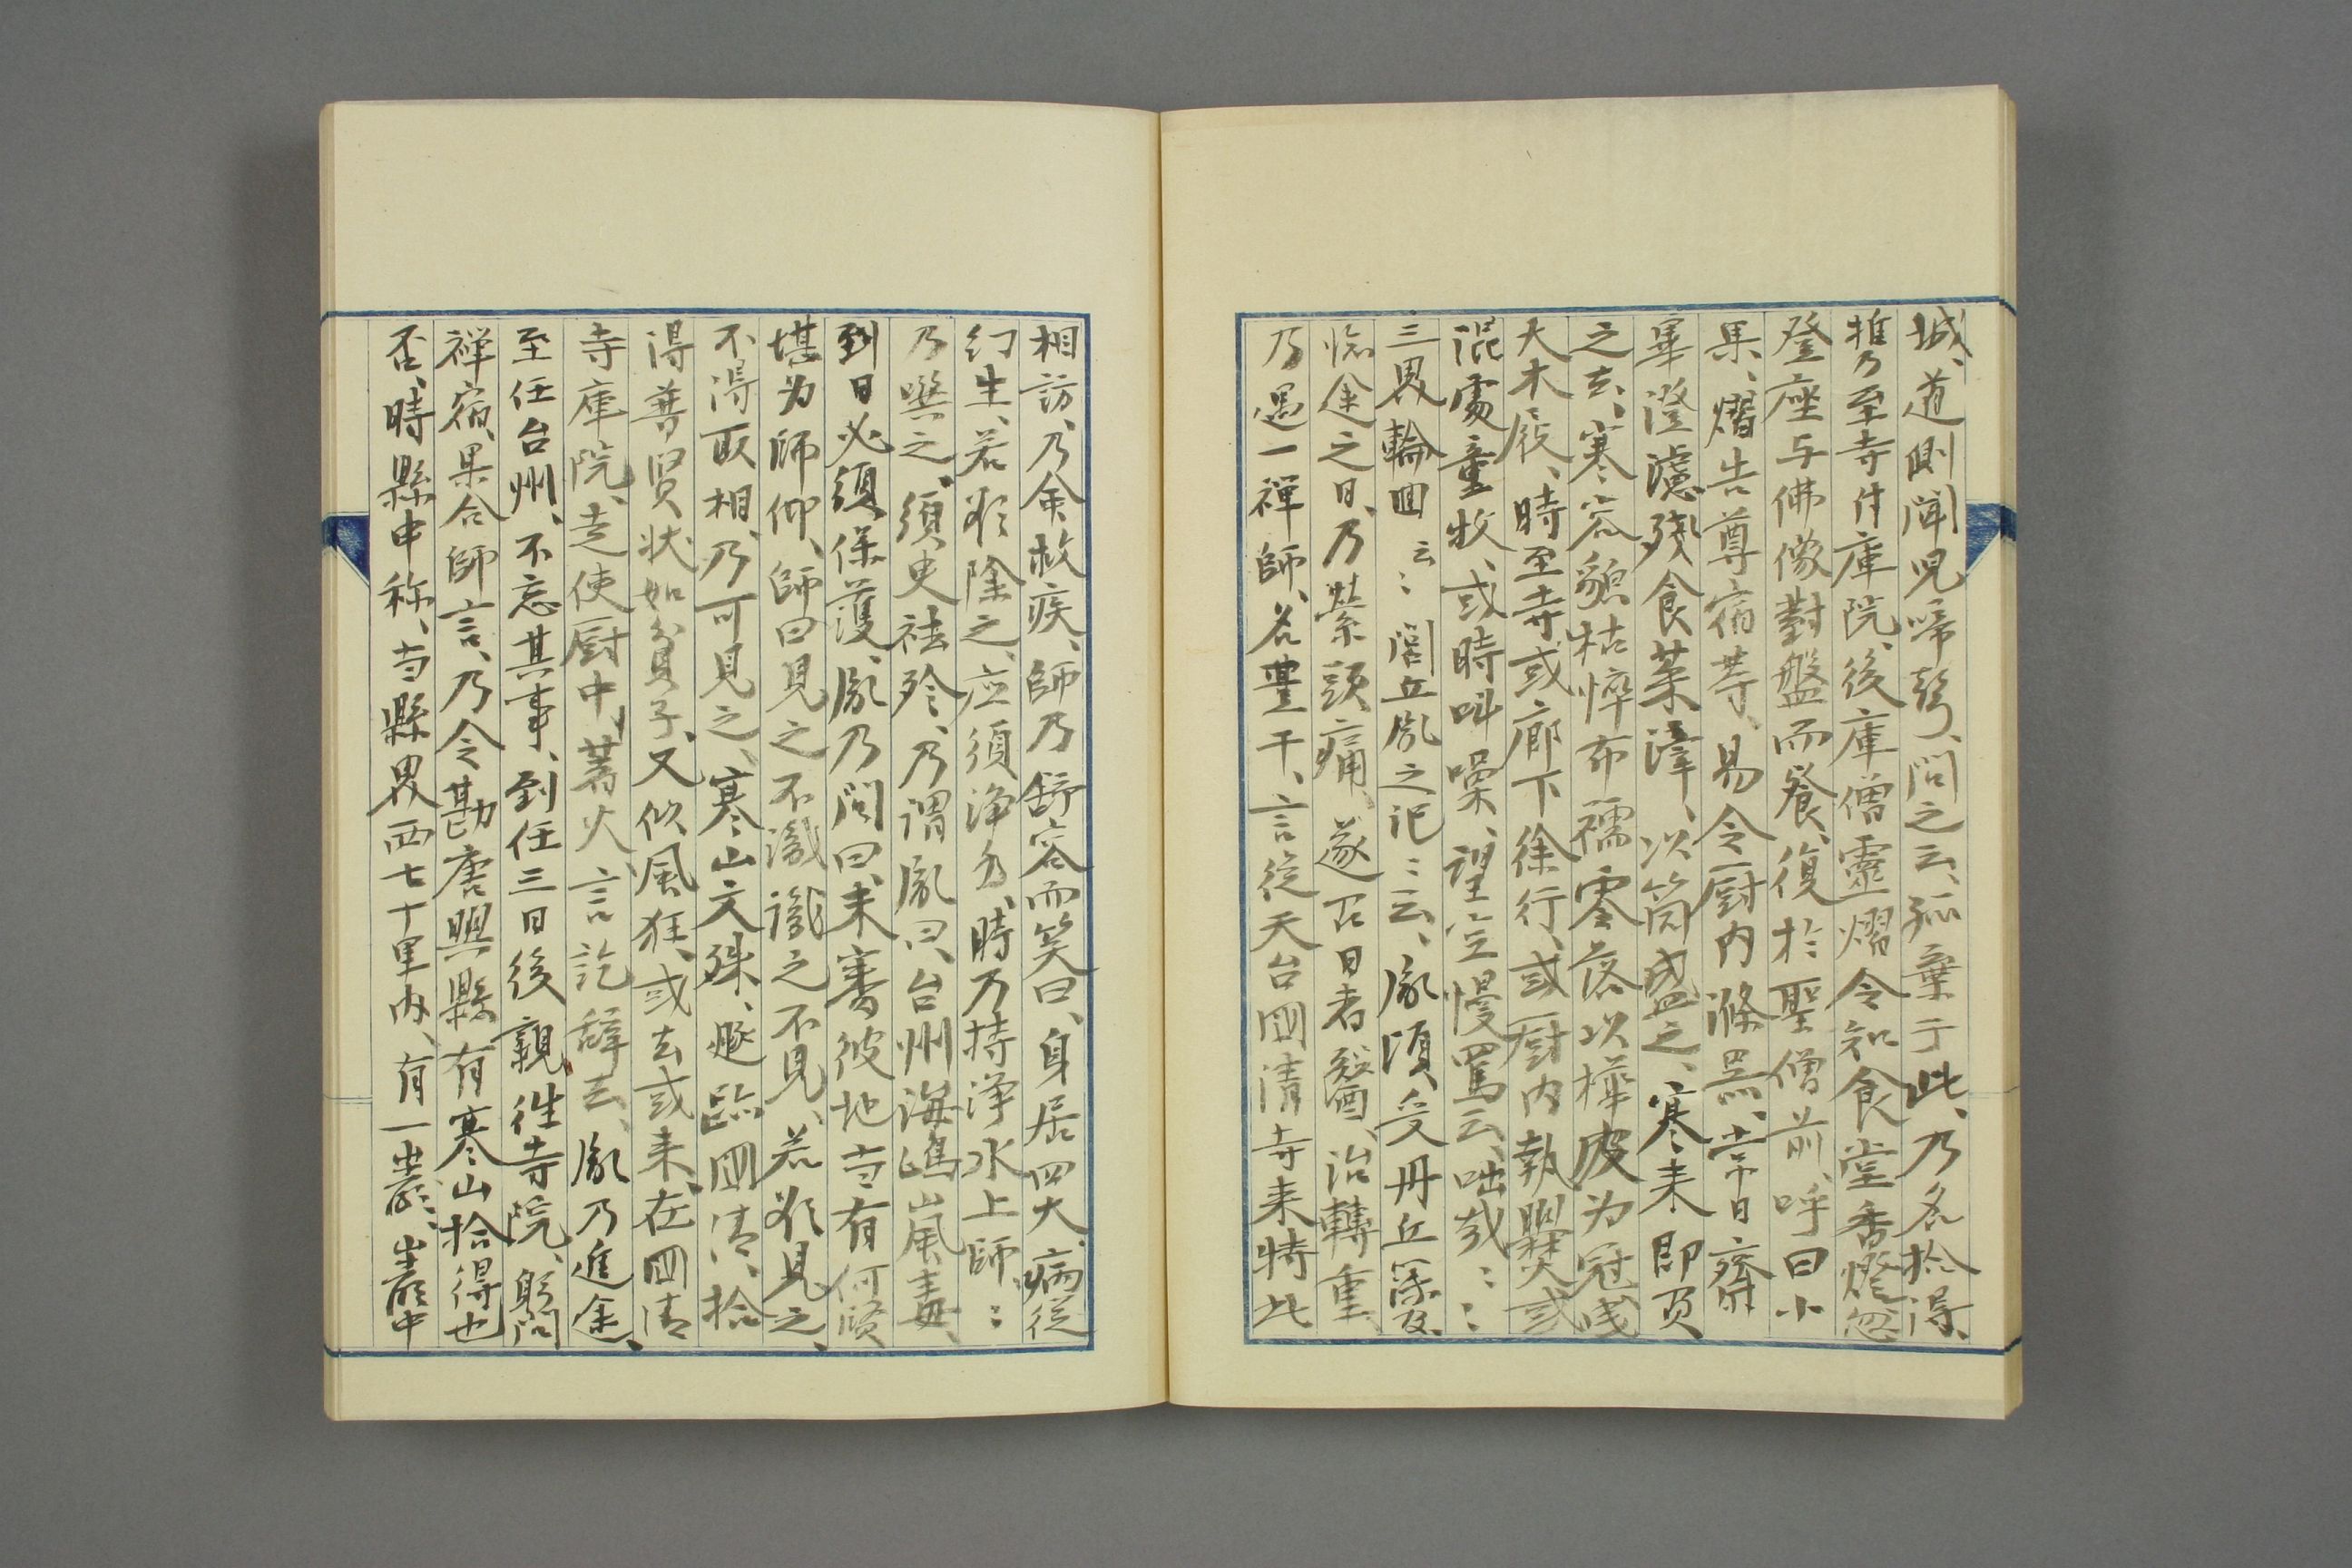 城、道側聞児啼声、問之云、孤棄于此、乃名拾得、
携乃至寺付庫院、後庫僧霊熠令知食堂香燈忽
登座与佛像對盤而餐、復於聖僧前、呼曰小
果、熠告尊宿等、易令厨内滌器、常日齋
畢澄濾残食菜滓、以筒盛之、寒来即負
之去、寒容貌枯悴布襦零落以樺皮为冠曳
大木屐、時至寺或廊下徐行、或厨内執爨或
混處童牧、或時叫噪、望空慢罵云、咄哉〻〻
三界輪回云〻閭丘胤之記〻云、胤頃受丹丘
臨途之日、乃縈頭痛、遂召日者醫治轉重、
乃遇一禅師、名豊干、言從天台國清寺来特此
相訪、乃命救疾、師乃舒容而笑曰、身居四大、病從
幻生、若欲除之、应須浄水、時乃持浄水上師、〻
乃噀之、須臾祛殄、乃謂胤曰、台州海嶋嵐毒、
到日必須保護、胤乃問曰、未審彼地当有何賢
堪为師仰、師曰見之不識識之不見、若欲見之、
不得取相、乃可見之、寒山文殊、遯跡國清、拾
得普賢状如貧子、又似風狂、或去或来、在國清
寺庫院、走使厨中、著火、言訖辞去、胤乃進途、
至任台州、不忘其事、到任三日後、親往寺院、躬問
禅宿、果合師言、乃令勘唐興縣有寒山拾得也
否、時縣申称、当縣界西七十里内、有一岩、岩中